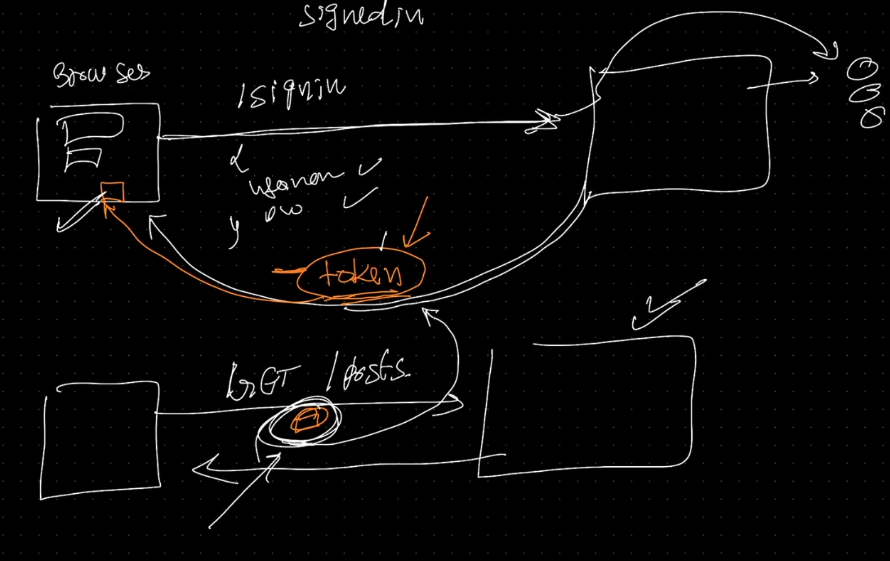 signedin
Browser
/signin
{
usernam
pw
}
token
GET /posts